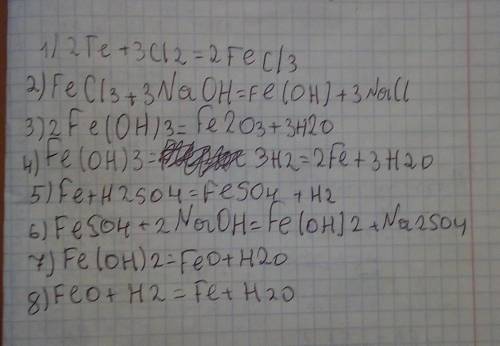 1) 2Fe + 3Cl2 = 2FeCl3
2) FeCl3 + 3NaOH = Fe(OH) + 3NaCl
3) 2Fe(OH)3 = Fe2O3 + 3H2O
4) Fe(OH)3 = 3H2 = 2Fe + 3H2O
5) Fe + H2SO4 = FeSO4 + H2
6) FeSO4 + 2NaOH = Fe(OH)2 + Na2SO4
7) Fe(OH)2 = FeO + H2O
8) FeO + H2 = Fe + H2O